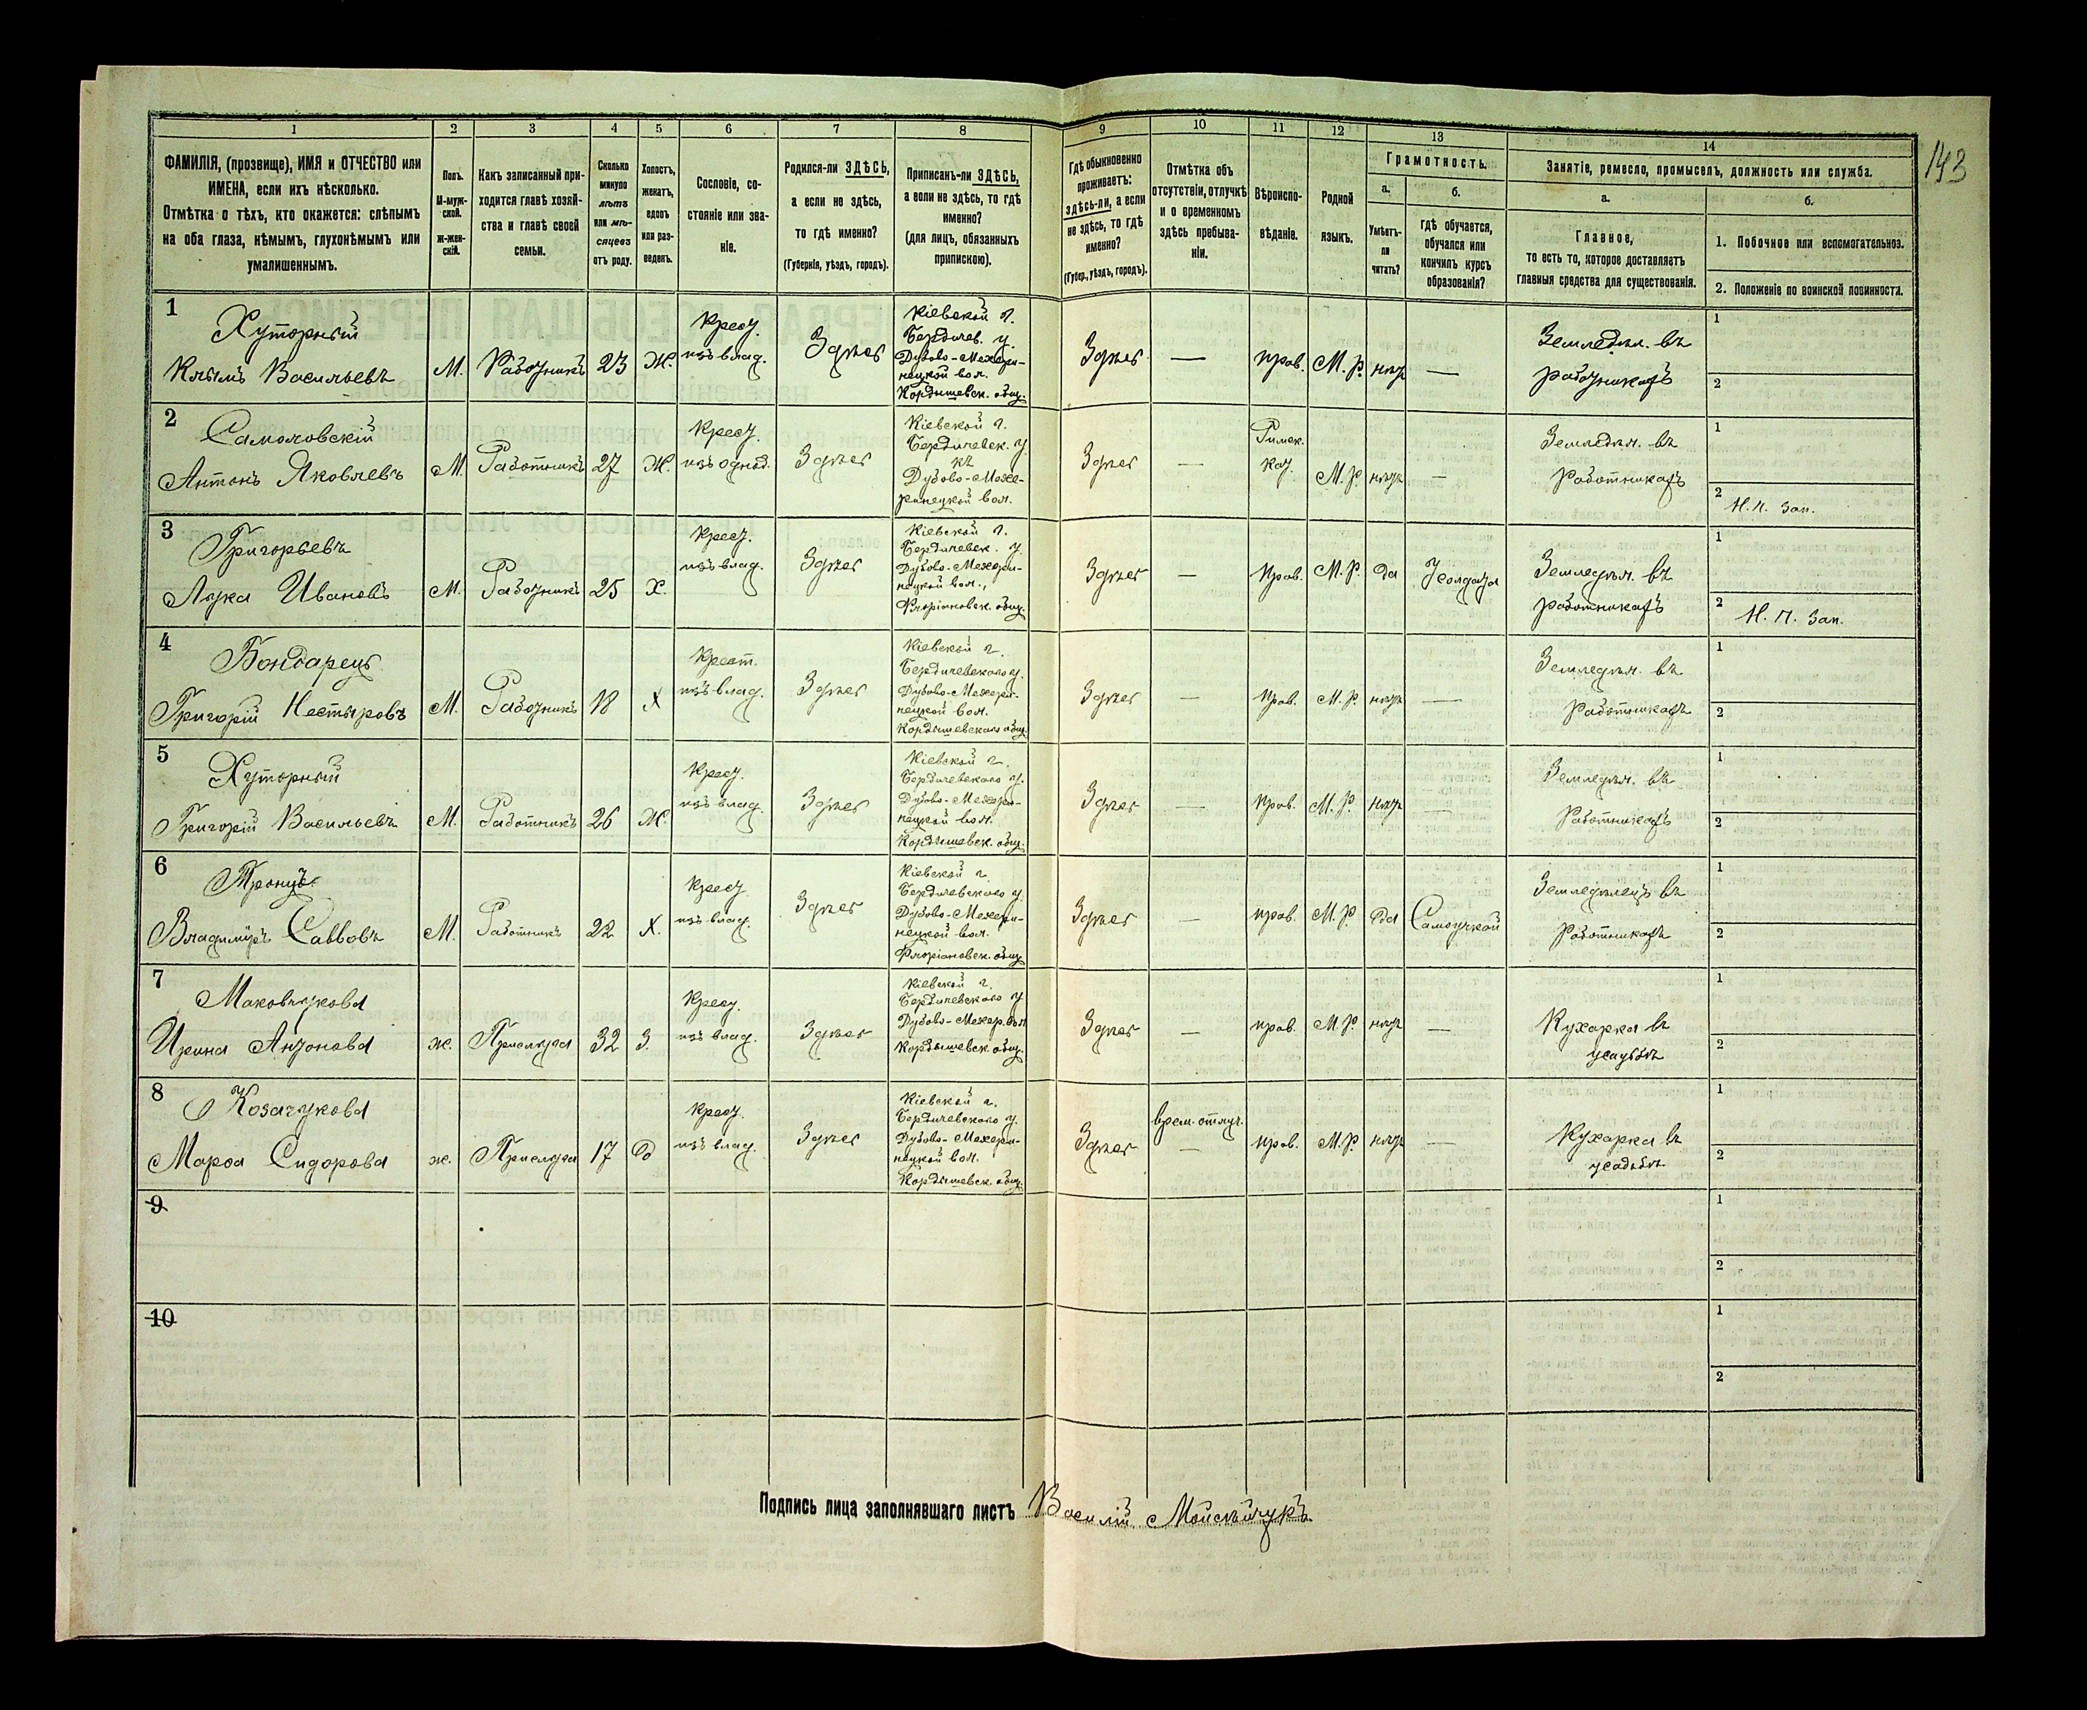 143
1 2 3 4 5 6 7 8 9 10 11 12 13 14
ФАМИЛІЯ, (прозвище), ИМЯ и ОТЧЕСТВО или ИМЕНА, если ихъ нѣсколько.
Отмѣтка о тѣхъ, кто окажется: слѣпымъ на оба глаза, нѣмымъ, глухонѣмымъ или умалишеннымъ.
Полъ.
М-мужской.
Ж-женскій.
Какъ записанный приходится главѣ хозяйства и главѣ своей семьи.
Сколько минуло лѣтъ или мѣсяцевъ отъ роду.
Холостъ, женатъ, вдовъ или разведенъ.
Сословіе, состояніе или званіе.
Родился-ли ЗДѢСЬ, а если не здѣсь, то гдѣ именно?
(Губернія, уѣздъ, городъ).
Приписанъ-ли ЗДѢСЬ, а если не здѣсь, то гдѣ именно?
(для лицъ, обязанныхъ припискою).
Гдѣ обыкновенно проживаетъ: здѣсь-ли, а если не здѣсь, то гдѣ именно?
(Губер., уѣздъ, городъ).
Отмѣтка объ отсутствіи, отлучкѣ и о временномъ здѣсь пребываніи.
Вѣроисповѣданіе.
Родной языкъ.
Грамотность.
а.
б.
Умѣетъ-ли читать?
Гдѣ обучается, обучался или кончилъ курсъ образованія?
Занятіе, ремесло, промыселъ, должность или служба.
а.
б.
Главное,
то есть то, которое доставляетъ главныя средства для существованія.
1. Побочное или вспомагательное.
2. Положеніе по воинской повинности.
1
Хуторный
Клымъ Васильевъ
М.
Работникъ
23
Ж.
Крест.
изъ влад.
Здѣсь
Кіевской г.
Бердичев. у.
Дубово-Межери-
нецкой вол.
Кордышевск. общ.
Здѣсь
—
прав.
М. р.
нѣтъ
—
Земледѣл. въ
работникахъ
1
2
2
Самоловскій
Антонъ Яковлевъ
М
Работникъ
27
Ж.
Крест.
изъ однод.
Здѣсь
Кіевской г.
Бердичевск. у.
Дубово-Меже-
ринецкой вол.
Здѣсь
—
Римск.
кат.
М. р.
нѣтъ
—
Земледѣл. въ
работникахъ
1
2
Н. п. зап.
3
Григорьевъ
Лука Ивановъ
М.
Работникъ
25
Х.
Крест.
изъ влад.
Здѣсь
Кіевской г.
Бердичевск. у.
Дубово-Межери-
нецкой вол.,
Флоріановск. общ.
Здѣсь
—
Прав.
М. р.
да
У солдата
Земледѣл. въ
работникахъ
1
2
Н. п. зап.
4
Бондарецъ
Григорій Нестыровъ
М.
Работникъ
18
Х
Крест.
изъ влад.
Здѣсь
Кіевской г.
Бердичевскаго у.
Дубово-Межери-
нецкой вол.
Кордышевскаго общ.
Здѣсь
—
Прав.
М. р.
нѣтъ
—
Земледѣл. въ
работникахъ
1
2
5
Хуторный
Григорій Васильевъ
М.
Работникъ
26
Ж.
Крест.
изъ влад.
Здѣсь
Кіевской г.
Бердичевскаго у.
Дубово-Межери-
нецкой вол.
Кордышевск. общ.
Здѣсь
—
Прав.
М. р.
нѣтъ
—
Земледѣл. въ
работникахъ
1
2
6
Владимиръ Саввовъ
М.
Работникъ
22
Х.
Крест.
изъ влад.
Здѣсь
Кіевской г.
Бердичевскаго у.
Дубово-Межери-
нецкой вол.
Флоріановск. общ.
Здѣсь
—
прав.
М. р.
да
Самоучкой
Земледѣлецъ въ
работникахъ
1
2
7
Маковчукова
Ирина Антонова
ж.
Прислуга
32
З.
Крест.
изъ влад.
Здѣсь
Кіевской г.
Бердичевскаго у.
Дубово-Межер. вол.
Кордышевск. общ.
Здѣсь
—
прав.
М. р.
нѣтъ
—
Кухарка въ
усадьбѣ
1
2
8
Козачукова
Марѳа Сидорова
ж.
Прислуга
17
Д
Крест.
изъ влад.
Здѣсь
Кіевской г.
Бердичевскаго у.
Дубово-Межери-
нецкой вол.
Кордышевск. общ.
Здѣсь
врем. отлуч.
—
прав.
М. р.
нѣтъ
—
Кухарка въ
усадьбѣ
1
2
9
1
2
10
1
2
Подпись лица заполнявшаго листъ Василій Мойсѣйчукъ